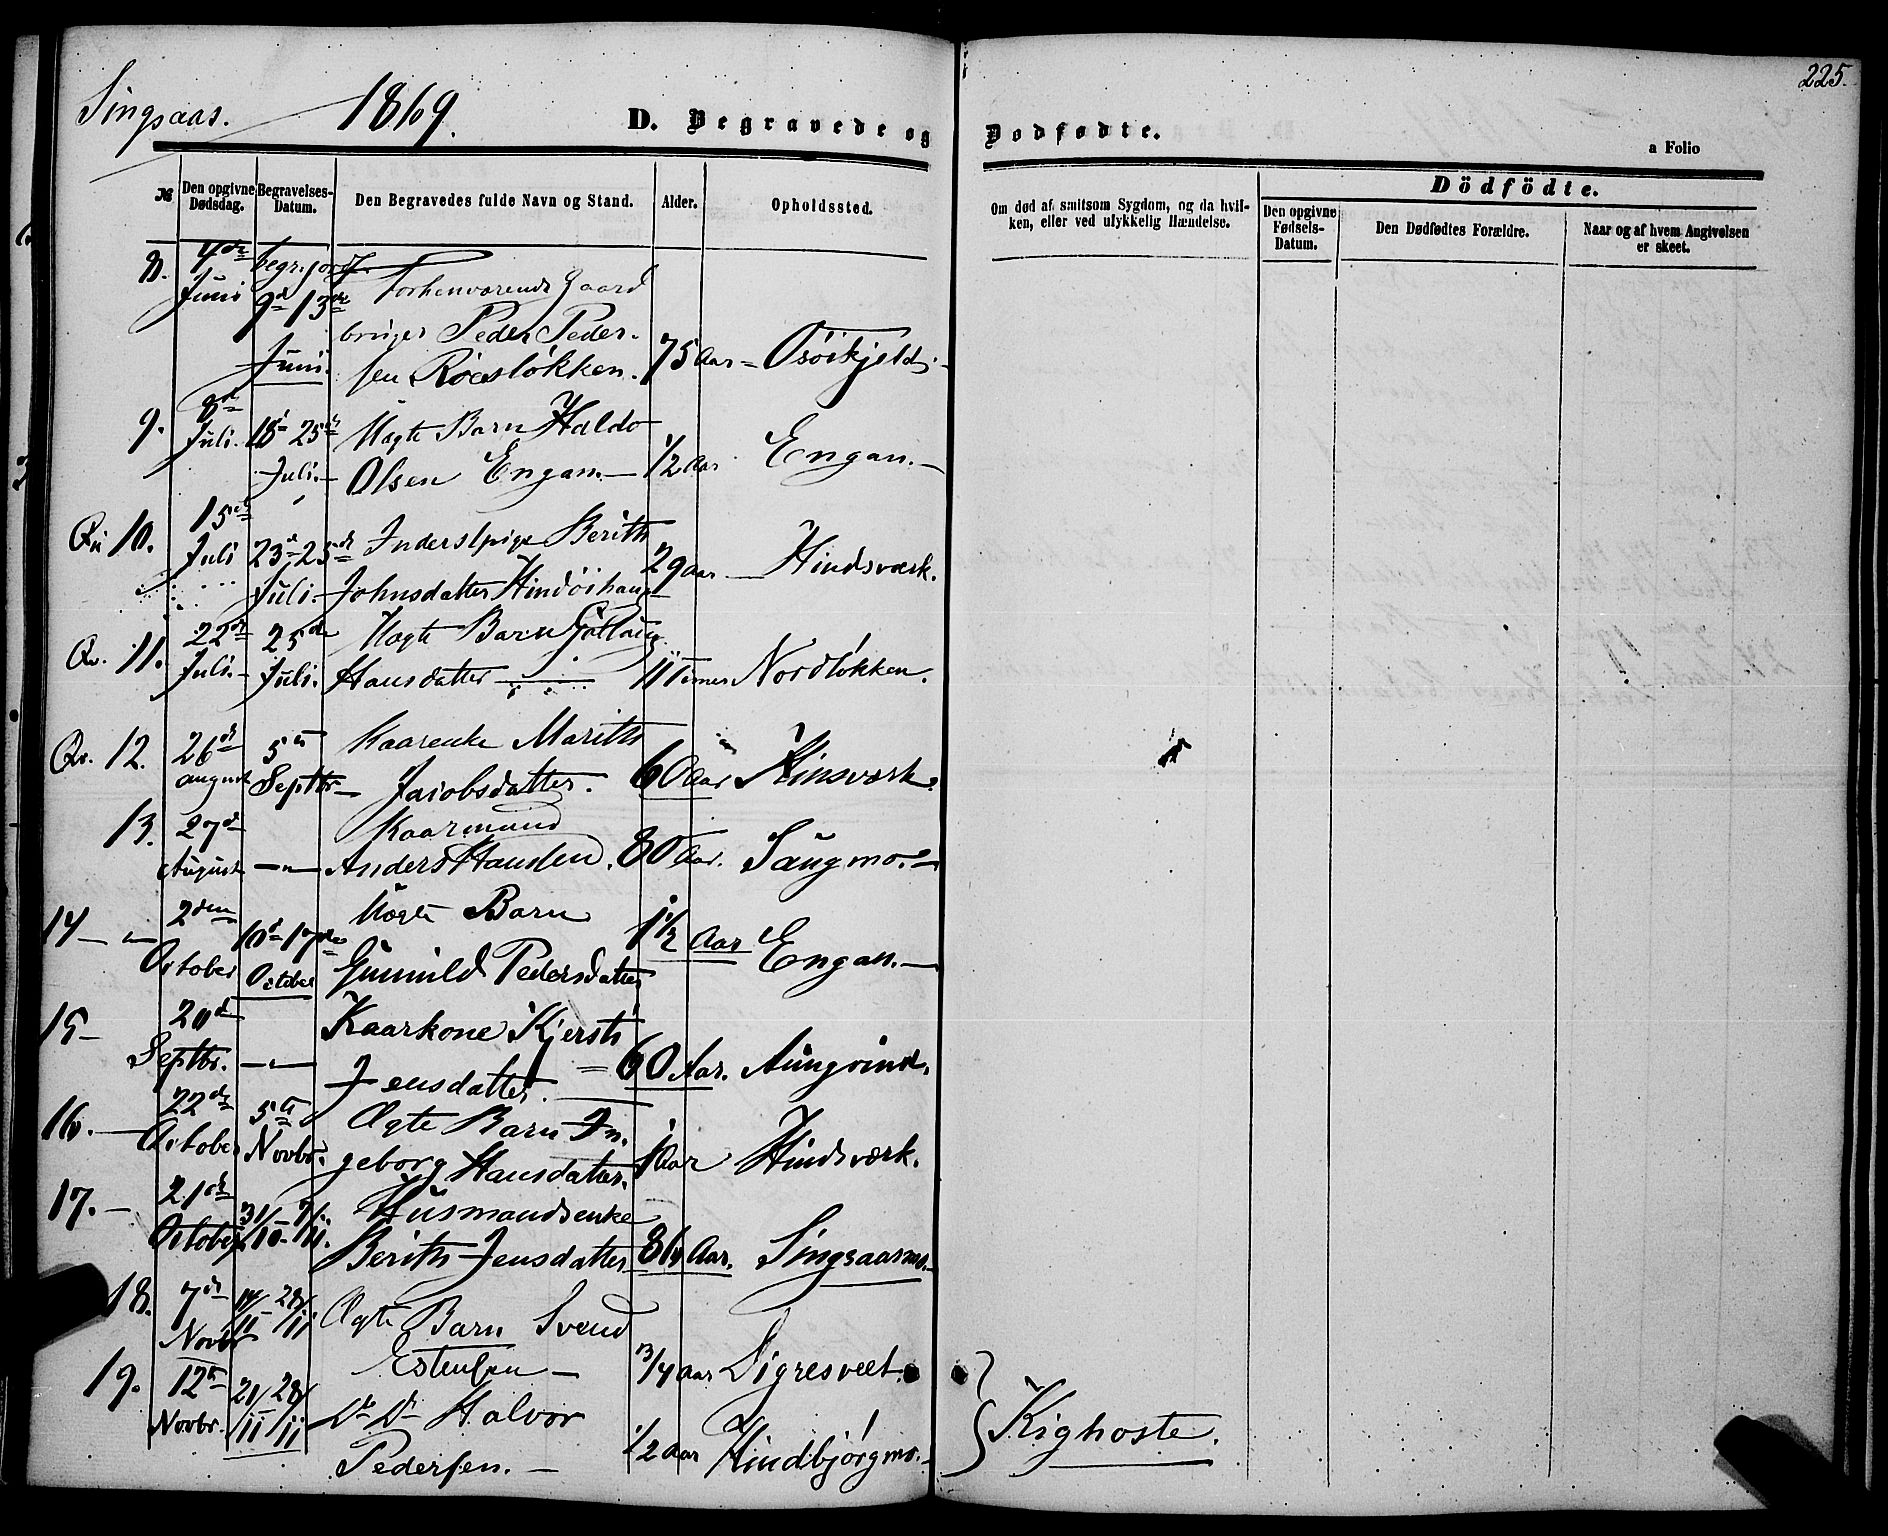 225.
Singsaas. 1869. D. Begravede og Dødfødte.
a Folio
№
Den opgivne Dødsdag.
Begravelses-Datum.
Den Begravedes fulde Navn og Stand.
Alder.
Opholdssted.
Om død af smitsom Sygdom, og da hvilken, eller ved ulykkelig Hændelse.
Dödfödte.
Den opgivne Fødsels-Datum.
Den Dødfødtes Forældre.
Naar og af hvem Angivelsen er skeet.
8. 7de begr. jordf. Forhenværende Gaard
Juni 9d 13de
bruger Peder Peder-
Juni. sen Röeslökken. 75 Aar -
9. 8d
Juli. 18d 25de Ægte Barn Haldo
Juli. Olsen Engan. ½ Aar Engan.
10. 15d
Juli 23d-25de Inderstpige Berith 29 Aar Hindsværk.
Juli. Johnsdatter
11. 22de 25de Ægte Barn
Juli. Juli. Hansdatter 11 Timer Nordløkken.
12. 26de 5te Kaarenke Marith
august Septbr. Jacobsdatter. 60 Aar Hinsværk.
13. 27d Kaarmand
August — " — Anders Hansen. 80 Aar. Saugmo.
14 — " — 2den Ægte Barn
October 10d-17de
October Gunnild Pedersdatter 1½ Aar Engan.
15 - 20d Kaarkone Kjersti
Septbr. — " — Jensdatter. 60 Aar.
16. 22de 5te Ægte Barn In-
October Novbr. geborg Hansdatter. 1 Aar Hindsværk.
17. 21de Husmandsenke
October 31/10 - 7/11. Berith Jensdatter 86 Aar. Singsaasmo.
18. 7de 14/11 - 28/11 Ægte Barn Svend
Novbr Estensen 3/4 Aar Digresveet.
19. 12te 21/11 28/11 Do Do Halvor
Novbr. Pedersen. ½ Aar Hindbjørgmo.
Kighoste.